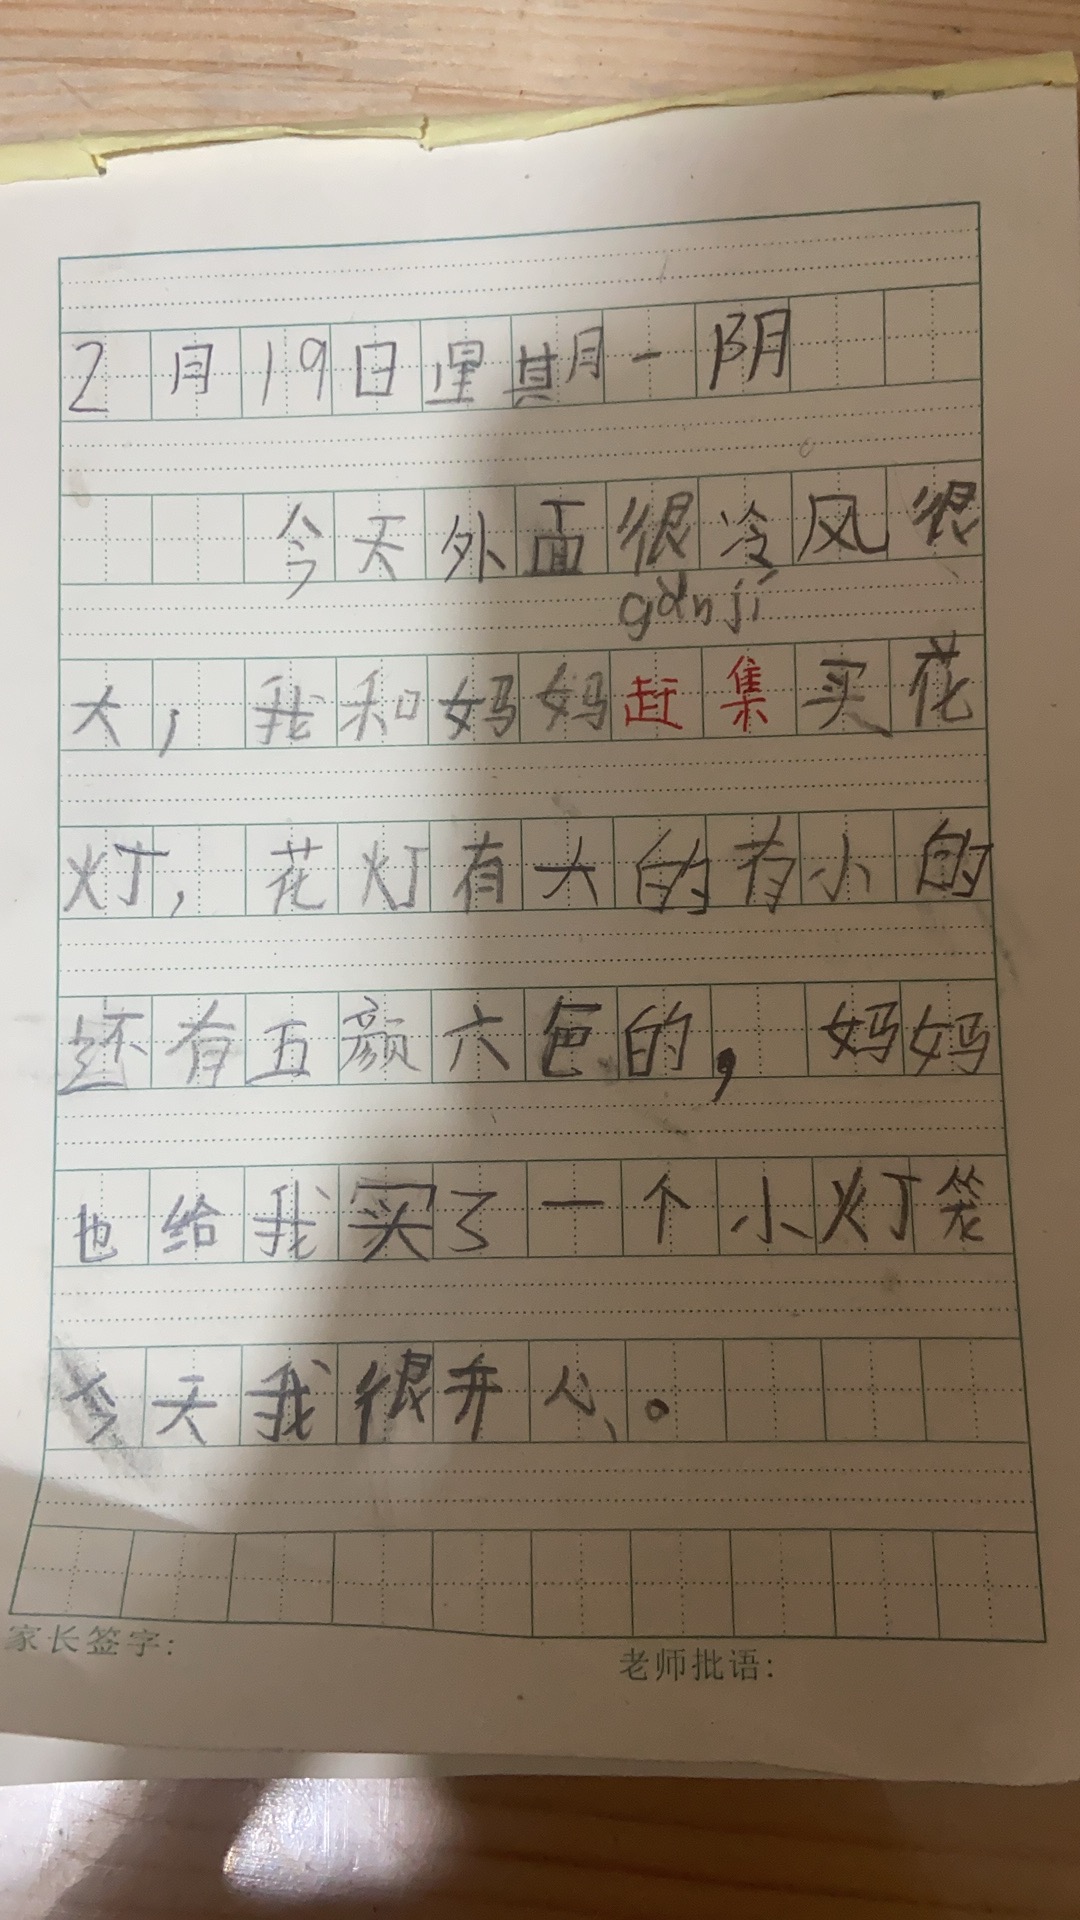 2月19日星期一阴
今天外面很冷风很
gǎnjí
大，我和妈妈赶集买花
灯，花灯有大的有小的
还有五颜六色的，妈妈
也给我买了一个小灯笼
今天我很开心。
家长签字：
老师批语：